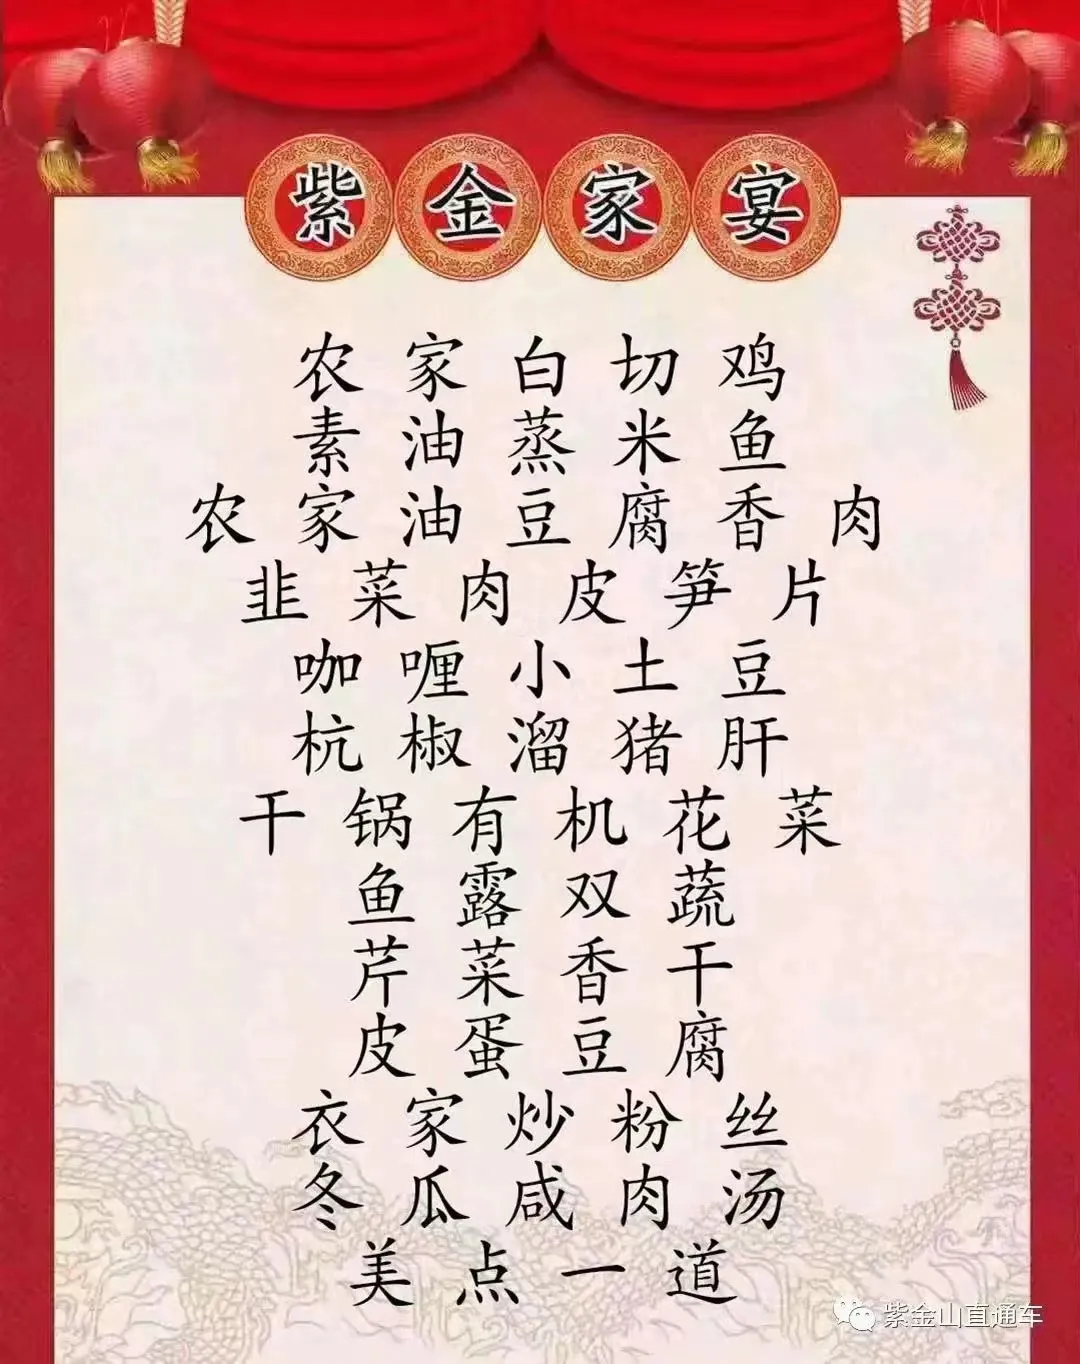 紫金家宴
农家白切鸡
素油蒸米鱼
农家油豆腐香肉
韭菜肉皮笋片
咖喱小土豆
杭椒溜猪肝
干锅有机花菜
鱼露双蔬
芹菜香干
皮蛋豆腐
衣家炒粉丝
冬瓜咸肉汤
美点一道
紫金山直通车